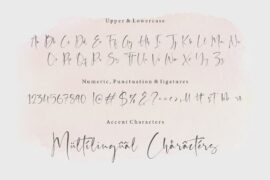 Upper & Lowercase
Aa Bb Cc Dd Ee Ff Gg Hh Ii Jj Kk Ll Mm Nn
Oo Pp Qq Rr Ss Tt Uu Vv Ww Xx Yy Zz
Numeric, Punctuation & ligatures
Accent Characters
Multilingual Characters